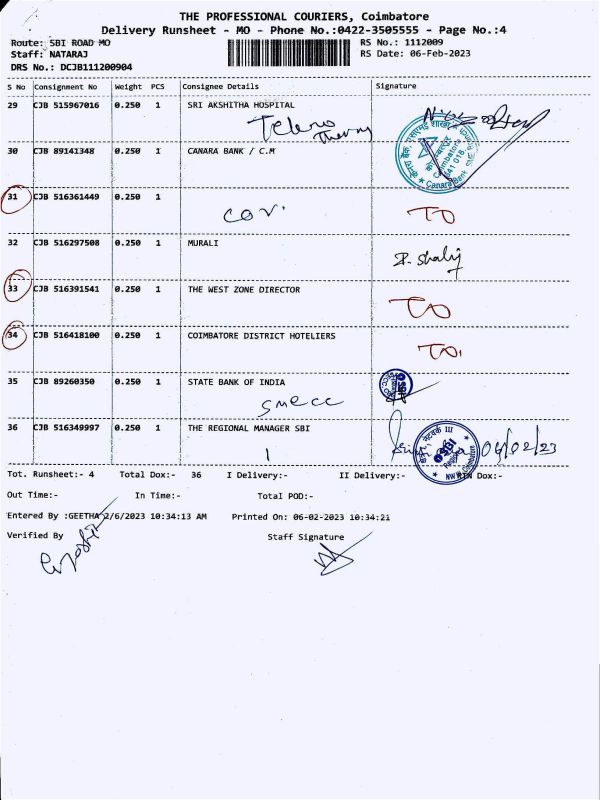 THE PROFESSIONAL COURIERS, Coimbatore
Delivery Runsheet - MO - Phone No.:0422-3505555 - Page No.:4
Route: SBI ROAD MO RS No.: 1112009
Staff: NATARAJ RS Date: 06-Feb-2023
DRS No.: DCJB111200904
S No Consignment No Weight PCS Consignee Details Signature
29 CJB 515967016 0.250 1 SRI AKSHITHA HOSPITAL
30 CJB 89141348 0.250 1 CANARA BANK / C.M
Coimbatore
641 018
Canara Bank
31 CJB 516361449 0.250 1
cov. TO
32 CJB 516297508 0.250 1 MURALI
33 CJB 516391541 0.250 1 THE WEST ZONE DIRECTOR
TO
34 CJB 516418100 0.250 1 COIMBATORE DISTRICT HOTELIERS
TO
35 CJB 89260350 0.250 1 STATE BANK OF INDIA
SMECC SBI
36 CJB 516349997 0.250 1 THE REGIONAL MANAGER SBI
SBI 06/02/23
Tot. Runsheet:- 4 Total Dox:- 36 I Delivery:- II Delivery:- Dox:-
Out Time:- In Time:- Total POD:-
Entered By :GEETHA 2/6/2023 10:34:13 AM Printed On: 06-02-2023 10:34:21
Verified By Staff Signature